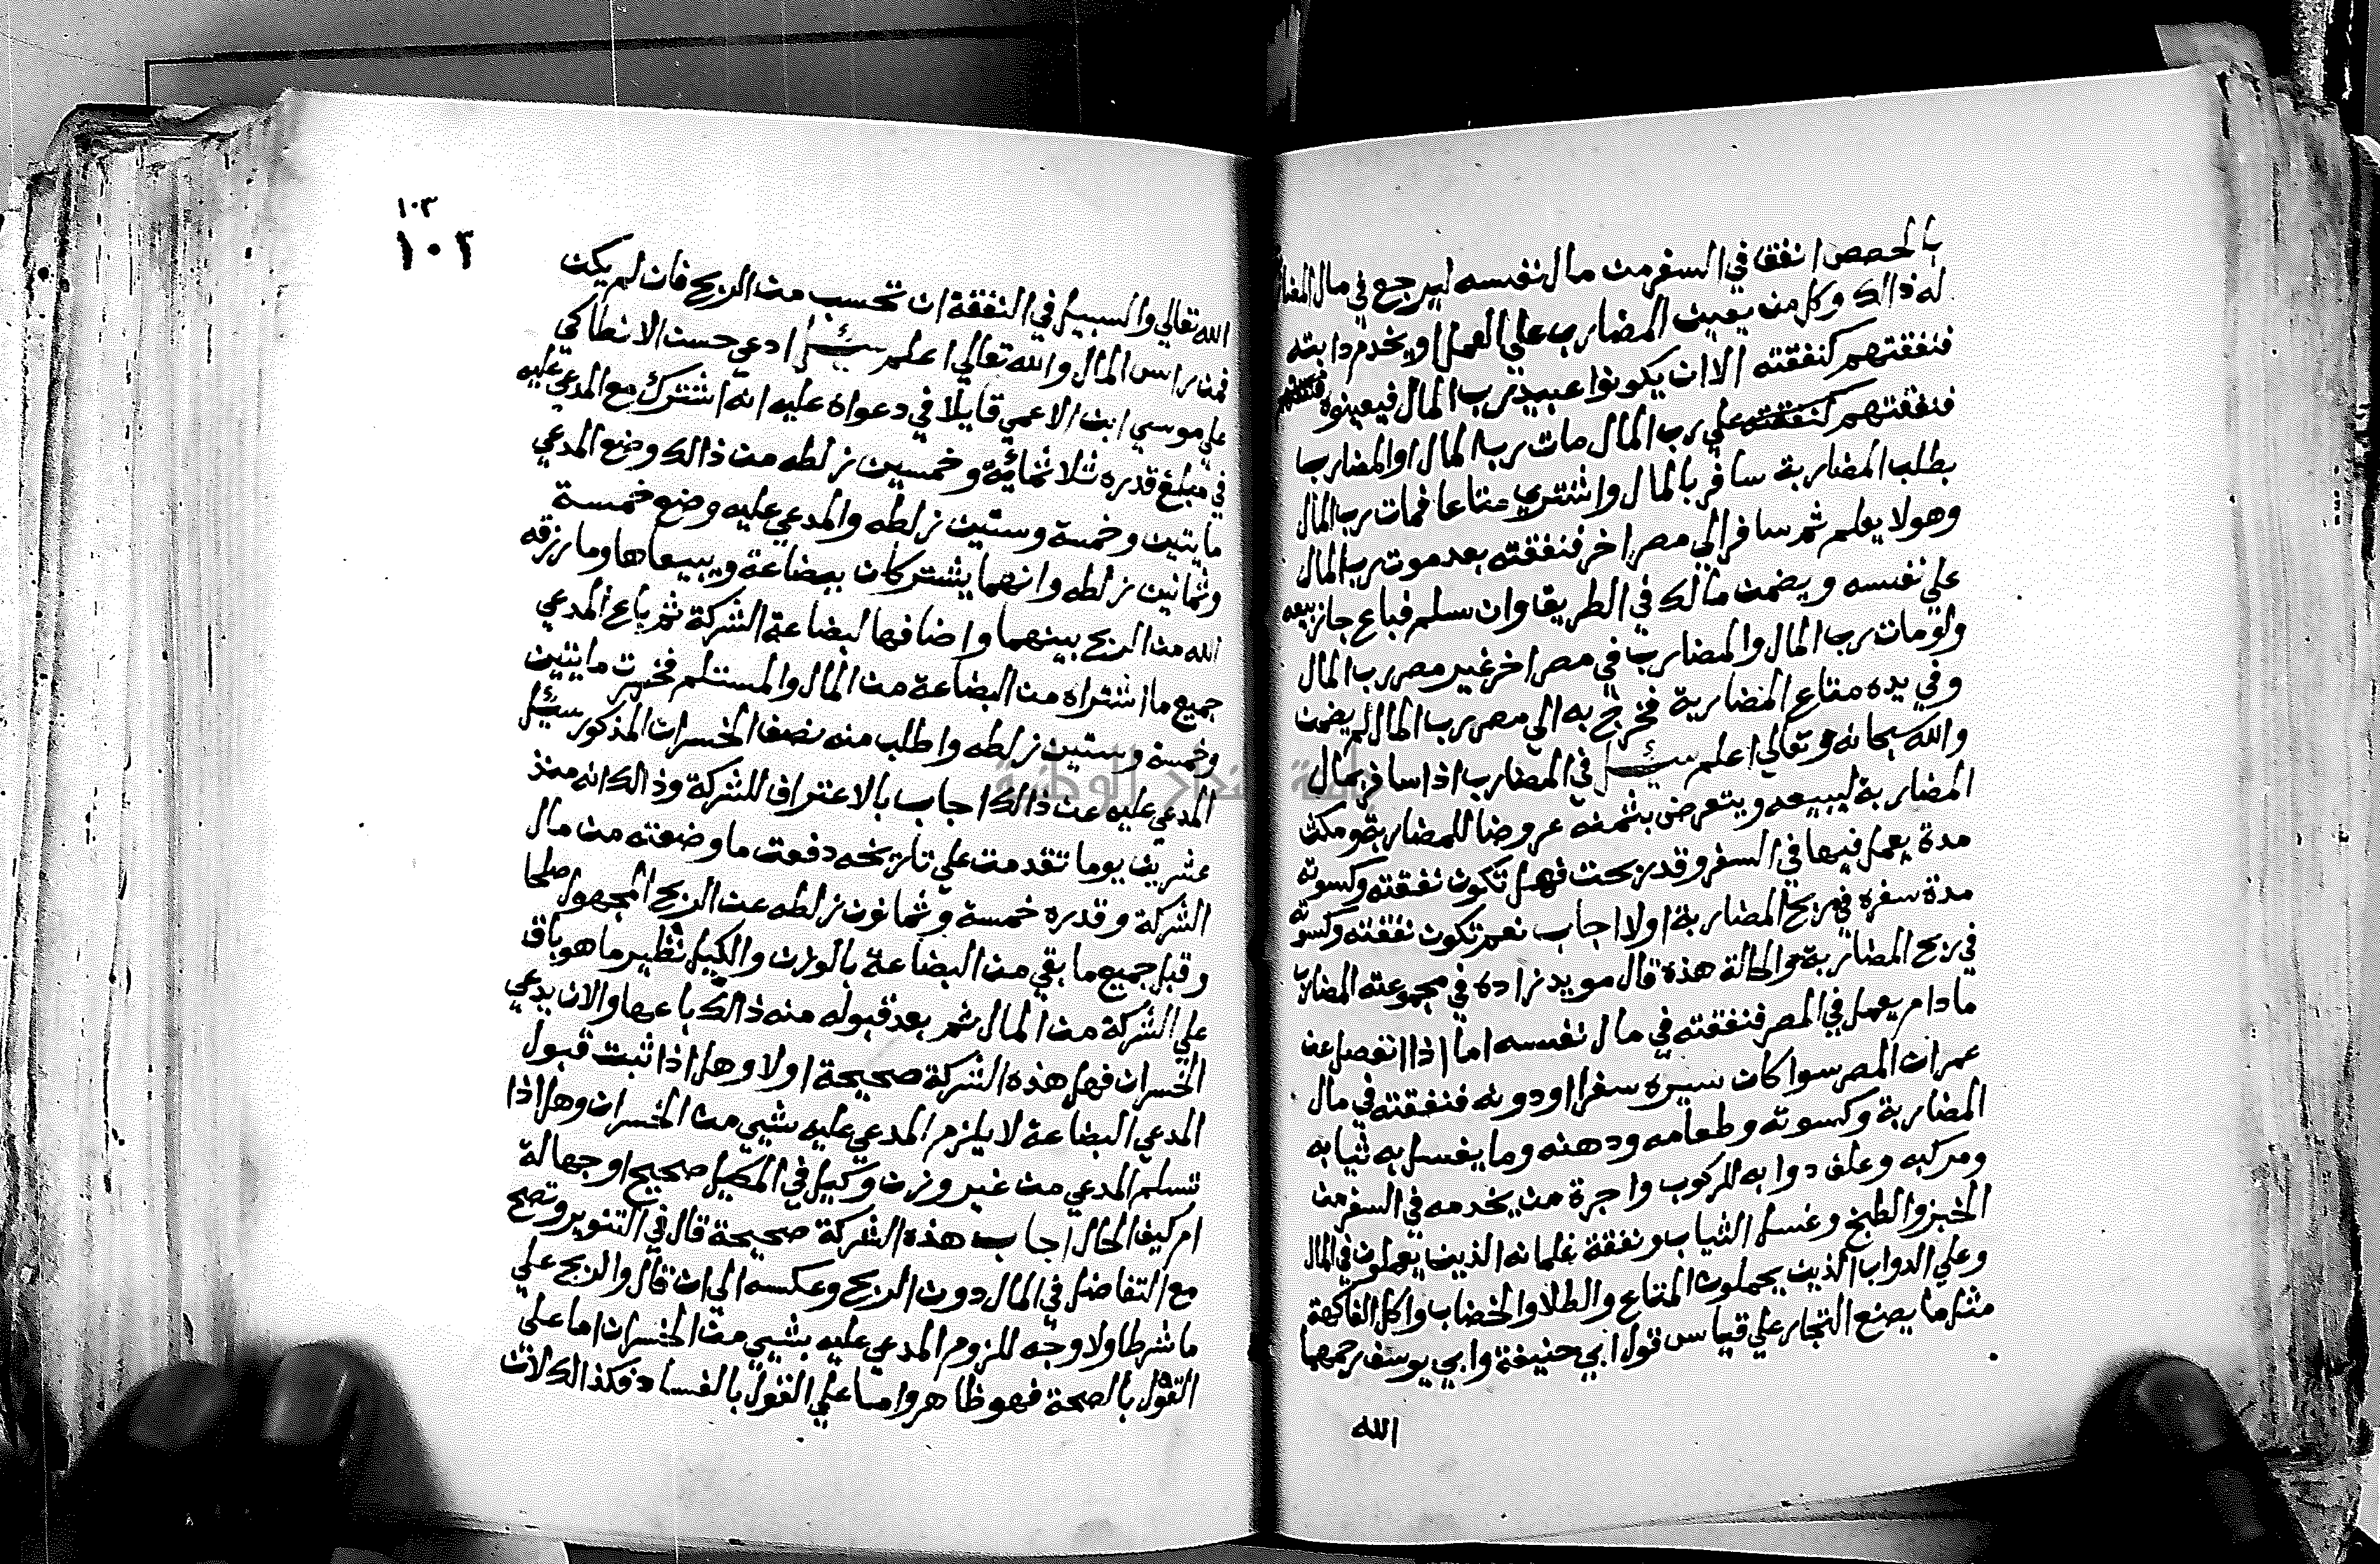 بالحصص انفقا في السفر من مال نفسه ليرجع في مال المضا
له ذالك وكل من يعين المضارب علي العمل او يخدم دابته
فنفقتهم كنفقته الا ان يكونوا عبيد رب المال فيعينوه
فنفقتهم كنفقته علي رب المال مات رب المال او المضارب
بطلب المضاربة سافر بالمال واشتري متاعا فمات رب المال
وهو لا يعلم ثم سافر الي مصر اخر فنفقته بعد موت رب المال
علي نفسه ويضمن مالك في الطريق وان سلم فباع جاز بيعه
ولو مات رب المال والمضارب في مصر اخر غير مصر رب المال
وفي يده متاع المضاربة فخرج به الي مصر رب المال لم يضمن
والله سبحانه وتعالي اعلم سئل في المضارب اذا سافر بمال
المضاربة ليبيعه ويتعرض بثمنه عروضا للمضاربة ومكث
مدة يعمل فيها في السفر وقد ربحت فهل تكون نفقته وكسوته
مدة سفره في ربح المضاربة او لا اجاب نعم تكون نفقته وكسوته
في ربح المضاربة والحالة هذه قال مويد زاده في مجموعته المضارب
ما دام يعمل في المصر فنفقته في مال نفسه اما اذا انفصل عن
عمران المصر سوا كان سيره سفرا او دونه فنفقته في مال
المضاربة وكسوته وطعامه ودهنه وما يغسل به ثيابه
ومركبه وعلف دوابه للركوب واجرة من يخدمه في السفر من
الخبز والطبخ وغسل الثياب ونفقة غلمانه الذين يعملون في المال
وعلي الدواب الذين يحملون المتاع والطلا والخضاب واكل الفاكهة
مثل ما يصنع التجار علي قياس قول ابي حنيفة وابي يوسف رحمهما
الله
١٠٣
١٠٣
الله تعالي والسبيل في النفقة ان تحسب من الربح فان لم يكن
فمن راس المال والله تعالي اعلم سئل ادعي حسن الانطاكي
علي موسي ابن الاعمي قايلا في دعواه عليه انه اشترك مع المدعي عليه
في مبلغ قدره ثلاثمائة وخمسين زلطه من ذالك وضع المدعي
مايتين وخمسة وستين زلطه والمدعي عليه وضع خمسة
وثمانين زلطه وانهما يشتركان ببضاعة ويبيعاها وما رزقه
الله من الربح بينهما واضافها لبضاعة الشركة ثم باع المدعي
جميع ما اشتراه من البضاعة من المال والمستلم فخسرت مايتين
وخمسة وستين زلطه واطلب منه نصف الخسران المذكور سئل
المدعي عليه عن ذالك اجاب بالاعتراف للشركة وذالك انه منذ
عشرين يوما تقدمت علي تاريخه دفعت ما وضعته من مال
الشركة وقدره خمسة وثمانون زلطه عن الربح المجهول صلحا
وقبل جميع ما بقي من البضاعة بالوزن والكيل نظير ما هو باق
علي الشركة من المال ثم بعد قبوله منه ذالك باعها والان يدعي
الخسران فهل هذه الشركة صحيحة او لا وهل اذا ثبت قبول
المدعي البضاعة لا يلزم المدعي عليه بشيي من الخسران وهل اذا
تسلم المدعي من غير وزن وكيل في المكيل صحيح او جهالة
ام كيف الحال اجاب هذه الشركة صحيحة قال في التنوير وتصح
مع التفاضل في المال دون الربح وعكسه الي ان قال والربح علي
ما شرطا ولا وجه للزوم المدعي عليه بشيي من الخسران اما علي
القول بالصحة فهو ظاهر واما علي القول بالفساد فكذالك لان